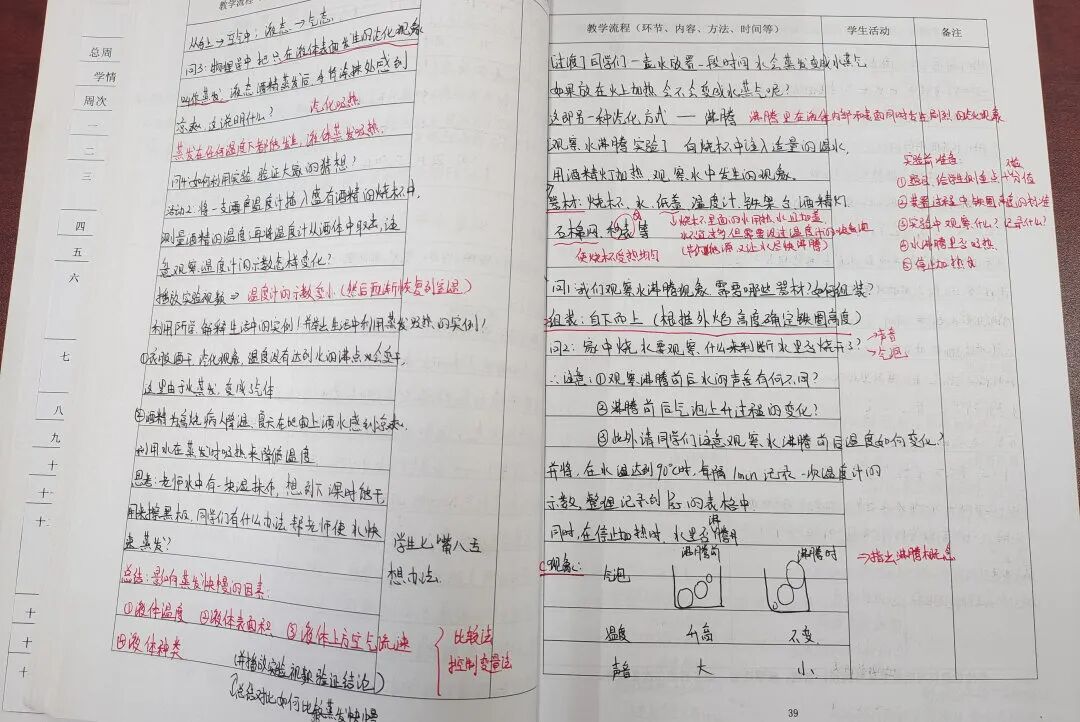 总周
学情
周次
一
二
三
四
五
六
七
八
九
十
十
十
十
十
十
教学流程
液态→气态.
问3:物理学中把只在液体表面发生的汽化现象
叫作蒸发 液态酒精蒸发后,手背涂抹处感到
凉爽,这说明什么? 汽化吸热
蒸发在任何温度下都能发生,液体蒸发吸热.
问4:如何利用实验验证大家的猜想?
活动2:将一支酒温度计插入盛有酒精的烧杯中,
测量酒精的温度;再将温度计从酒体中取出,注
意观察温度计的示数怎样变化?
播放实验视频 ⇒ 温度计的示数变小(然后再渐恢复到室温)
利用所学解释生活中的实例!并举出生活中利用蒸发吸热的实例!
汽化现象,温度没有达到水的沸点
这里由于水蒸发,变成了气体
②酒精为高烧病人降温,夏天在地面上洒水感到凉爽.
利用水在蒸发时吸热来降低温度
思考:老师水中有一块湿抹布,想到下课时能干,
用来擦黑板,同学们有什么办法 帮老师使水快
速蒸发?
学生七嘴八舌
想办法.
总结:影响蒸发快慢的因素:
①液体温度 ②液体表面积 ③液体上方空气流速
④液体种类
比较法
控制变量法
(并播放实验视频验证结论)
总结对比如何比较蒸发快慢
教学流程(环节、内容、方法、时间等)
学生活动
备注
过渡:同学们一盖水放置一段时间水会蒸发变成水蒸气
如果放在火上加热会不会变成水蒸气呢?
这即另一种汽化方式——沸腾 沸腾是在液体内部和表面同时发生剧烈的汽化现象
观察水沸腾实验: 向烧杯中注入适量的温水,
用酒精灯加热,观察水中发生的现象.
器材:烧杯、水、纸盖、温度计、铁架台、酒精灯
石棉网、秒表等
使烧杯受热均匀
烧杯里面的水用热水且加盖
水不宜过多但需要没过温度计的玻璃泡
又让水尽快沸腾)
实验前准备:
①
②装置过程中铁圈高度的标准
③实验中观察什么?记录什么?
④水沸腾是否吸热
⑤停止加热后
问1:我们观察水沸腾现象,需要哪些器材?如何组装?
组装:自下而上(根据外焰高度确定铁圈高度)
问2:家中烧水要观察什么来判断水是否烧开了?
→声音
→气泡
∴注意:①观察沸腾前后水的声音有何不同?
②沸腾前后气泡上升过程的变化?
③此外请同学们注意观察水沸腾前后温度如何变化?
并将,在水温达到90℃时,每隔1min记录一次温度计的
示数,整理记录到后的表格中.
同时,在停止加热时 水是否沸腾
现象:
沸腾前
沸腾时
⇒指出沸腾概念
气泡
温度 升高 不变
声音 大 小
39